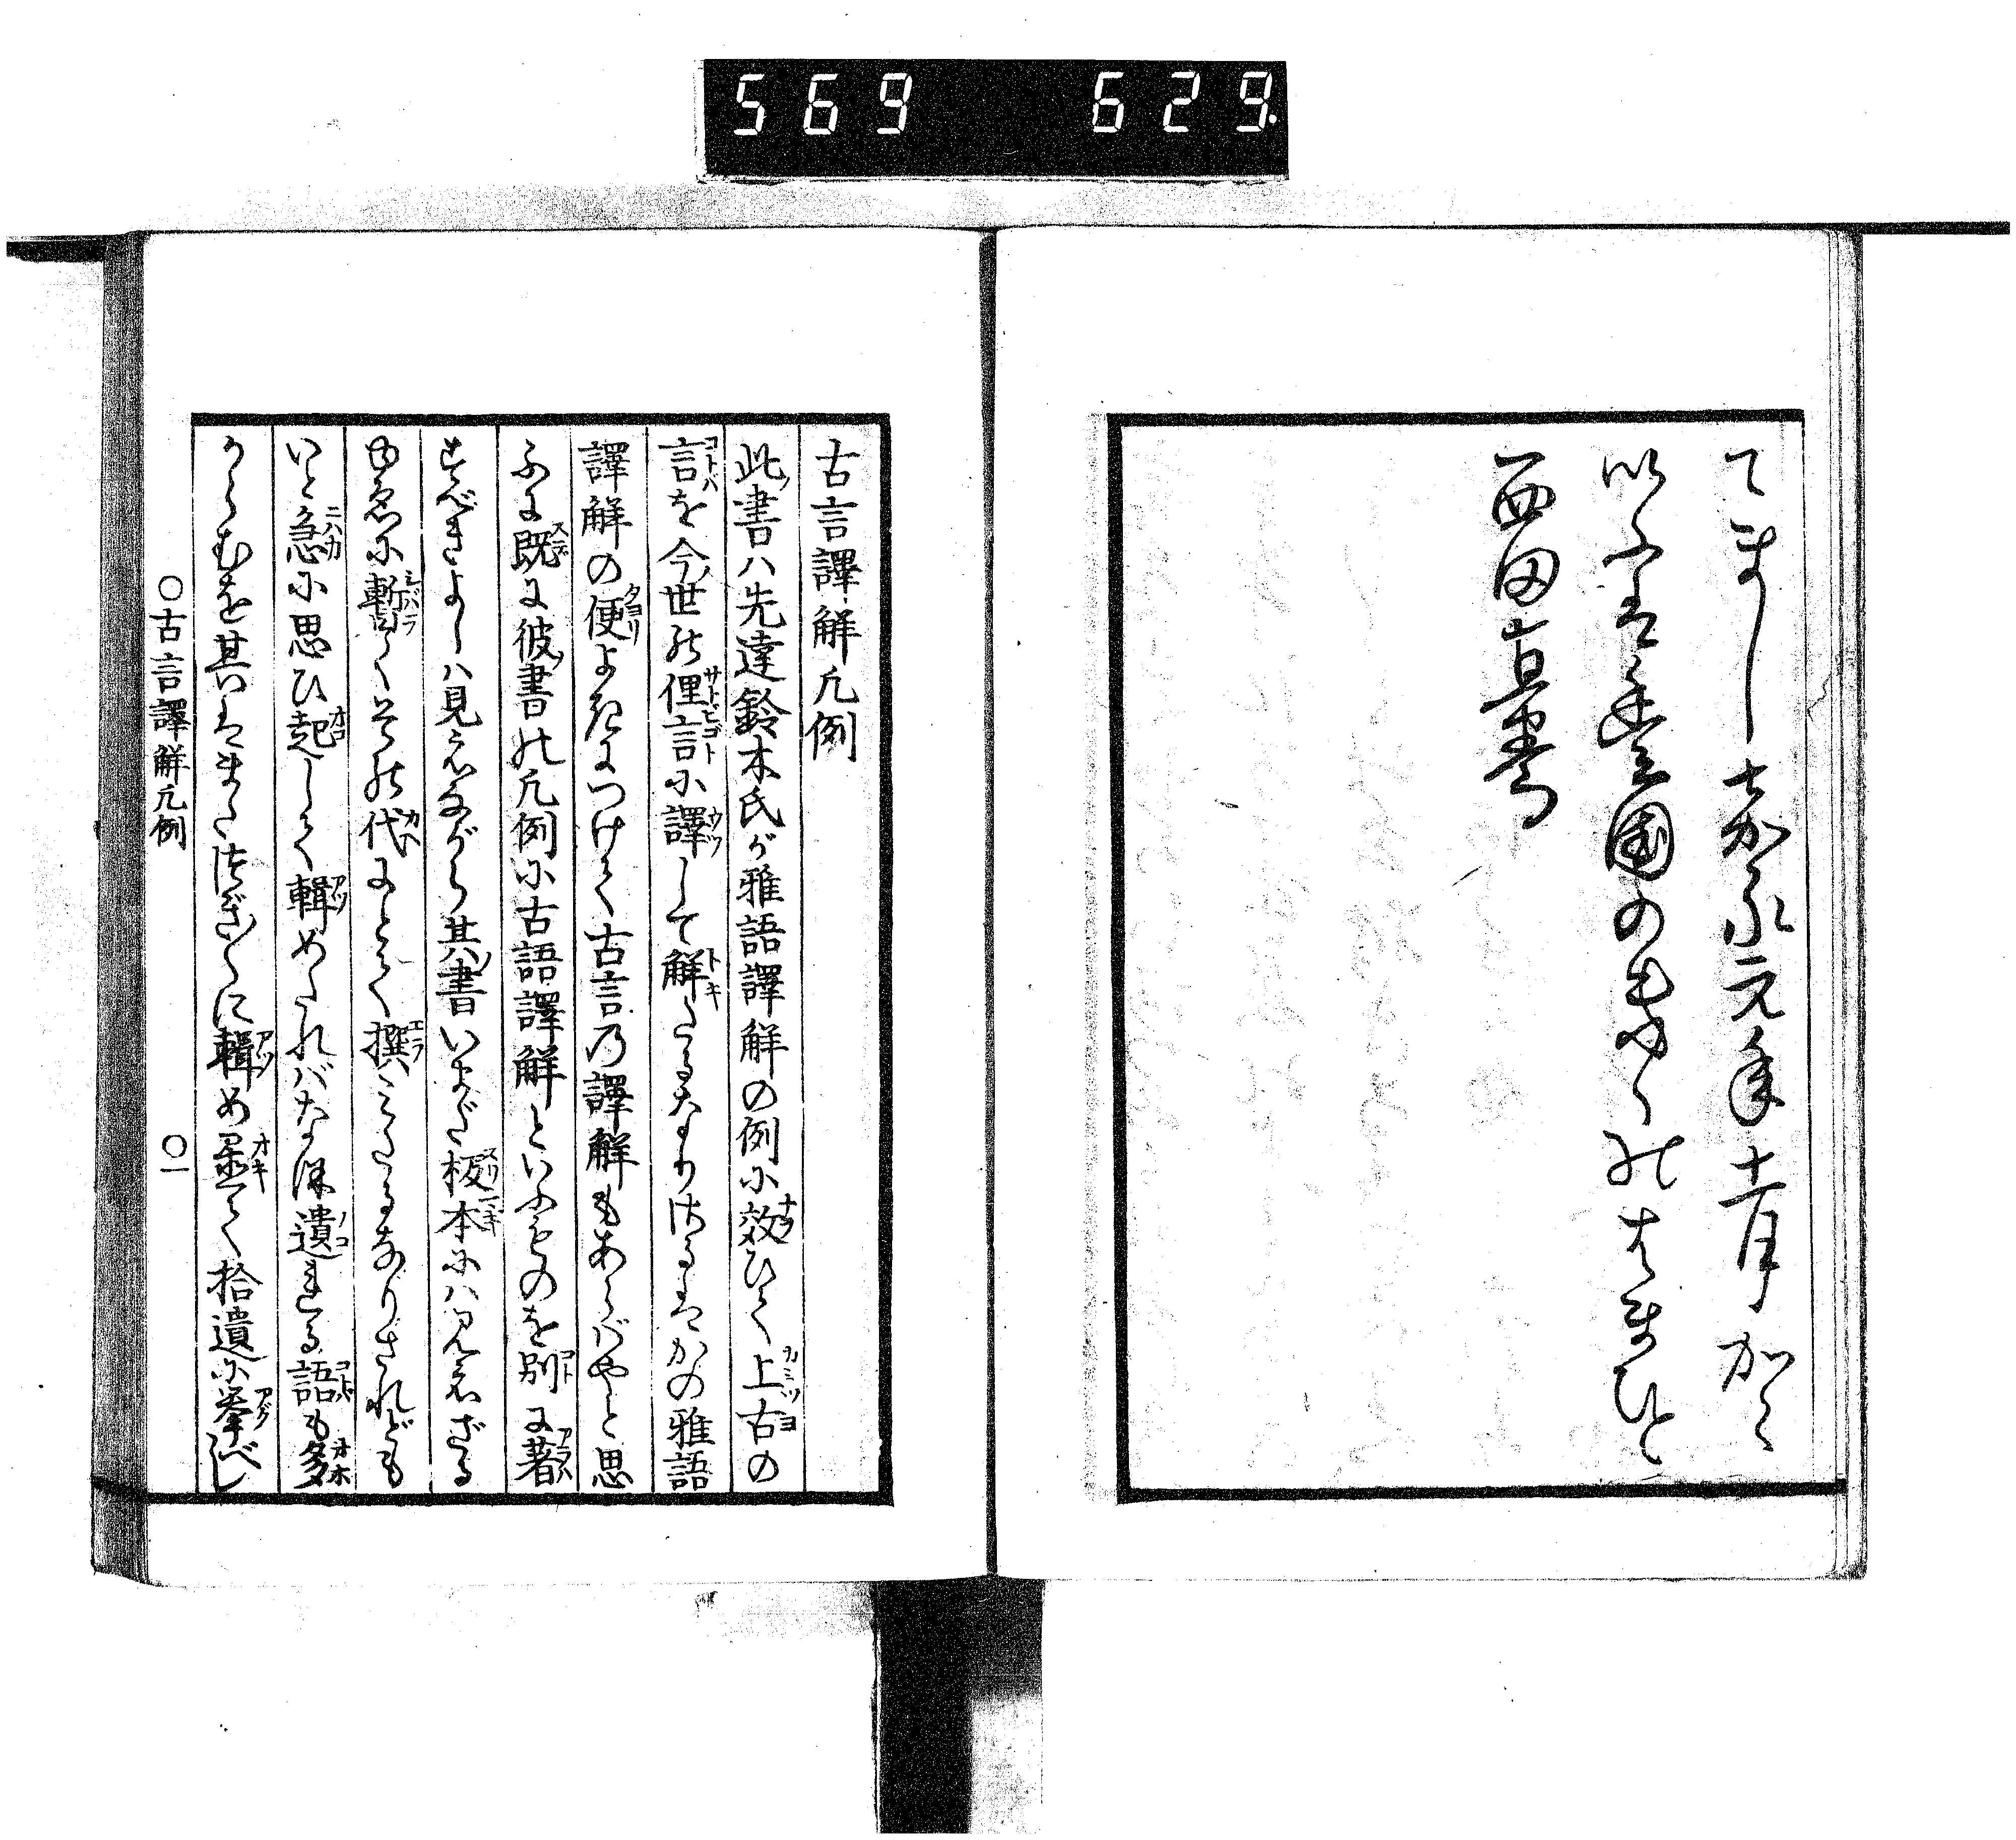 569 629.
てまし嘉永元年十一月かく
いふは参河国の
西田直養
古言譯解凡例
此書ハ先達鈴木氏が雅語譯解の例に效ひて上古の
言を今世の俚言に譯して解たるなりさるはかの雅語
譯解の便よきにつけて古言乃譯解もあらばやと思
ふに既に彼書の凡例に古語譯解といふものを別に著
すべきよしハ見えながら其書いまだ板本にハ見えざる
ゆゑに暫くそれ代にとて撰みたるなりされども
いと急に思ひ起して輯めたればなほ遺れる語も多
からむを其はまたつぎ／＼に輯め置て拾遺に挙べし
○古言譯解凡例 ○一